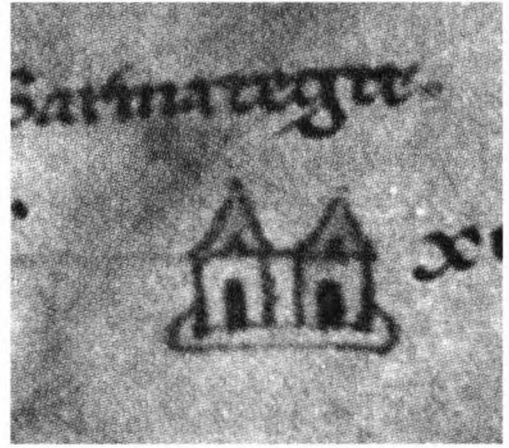 Sarmategte.
x